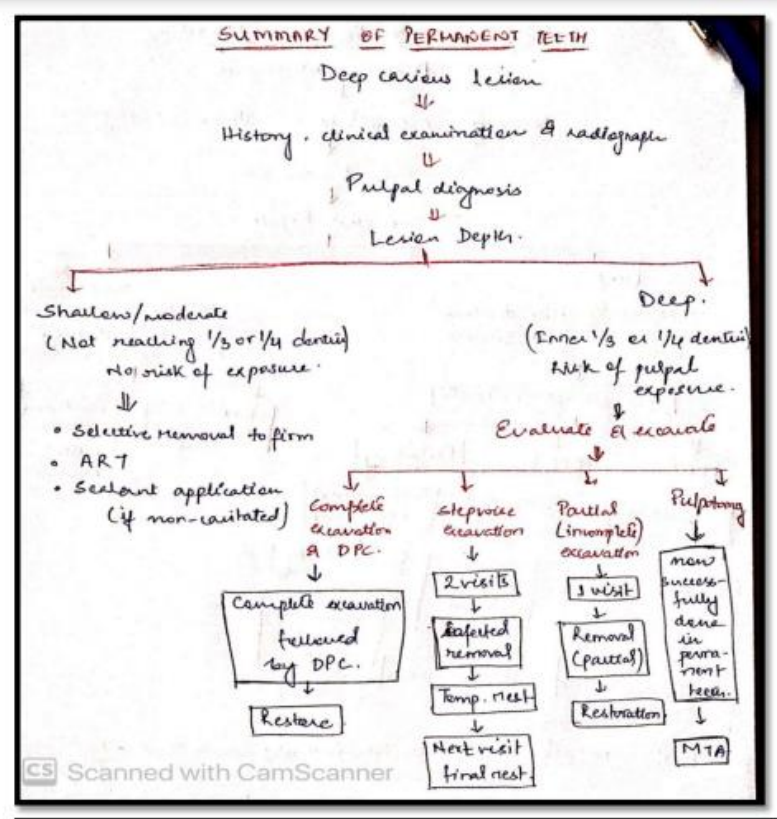 SUMMARY OF PERMANENT TEETH
Deep carious lesion
History, clinical examination & radiograph
Pulpal diagnosis
Lesion Depth.
Shallow/moderate
(Not reaching 1/3 or 1/4 dentin)
No risk of exposure.
• Selective removal to firm
• ART
• Sealant application
(if non-cavitated)
Deep.
(Inner 1/3 or 1/4 dentin)
Risk of pulpal
exposure.
Evaluate & excavate
Complete
excavation
& DPC.
Complete excavation
followed
by DPC.
Restore
stepwise
excavation
2 visits
Selected
removal
Temp. rest
Next visit
final rest.
Partial
(incomplete)
excavation
1 visit
Removal
(partial)
Restoration
Pulpotomy
now
success-
fully
done
in
perma-
nent
teeth.
MTA
CS Scanned with CamScanner